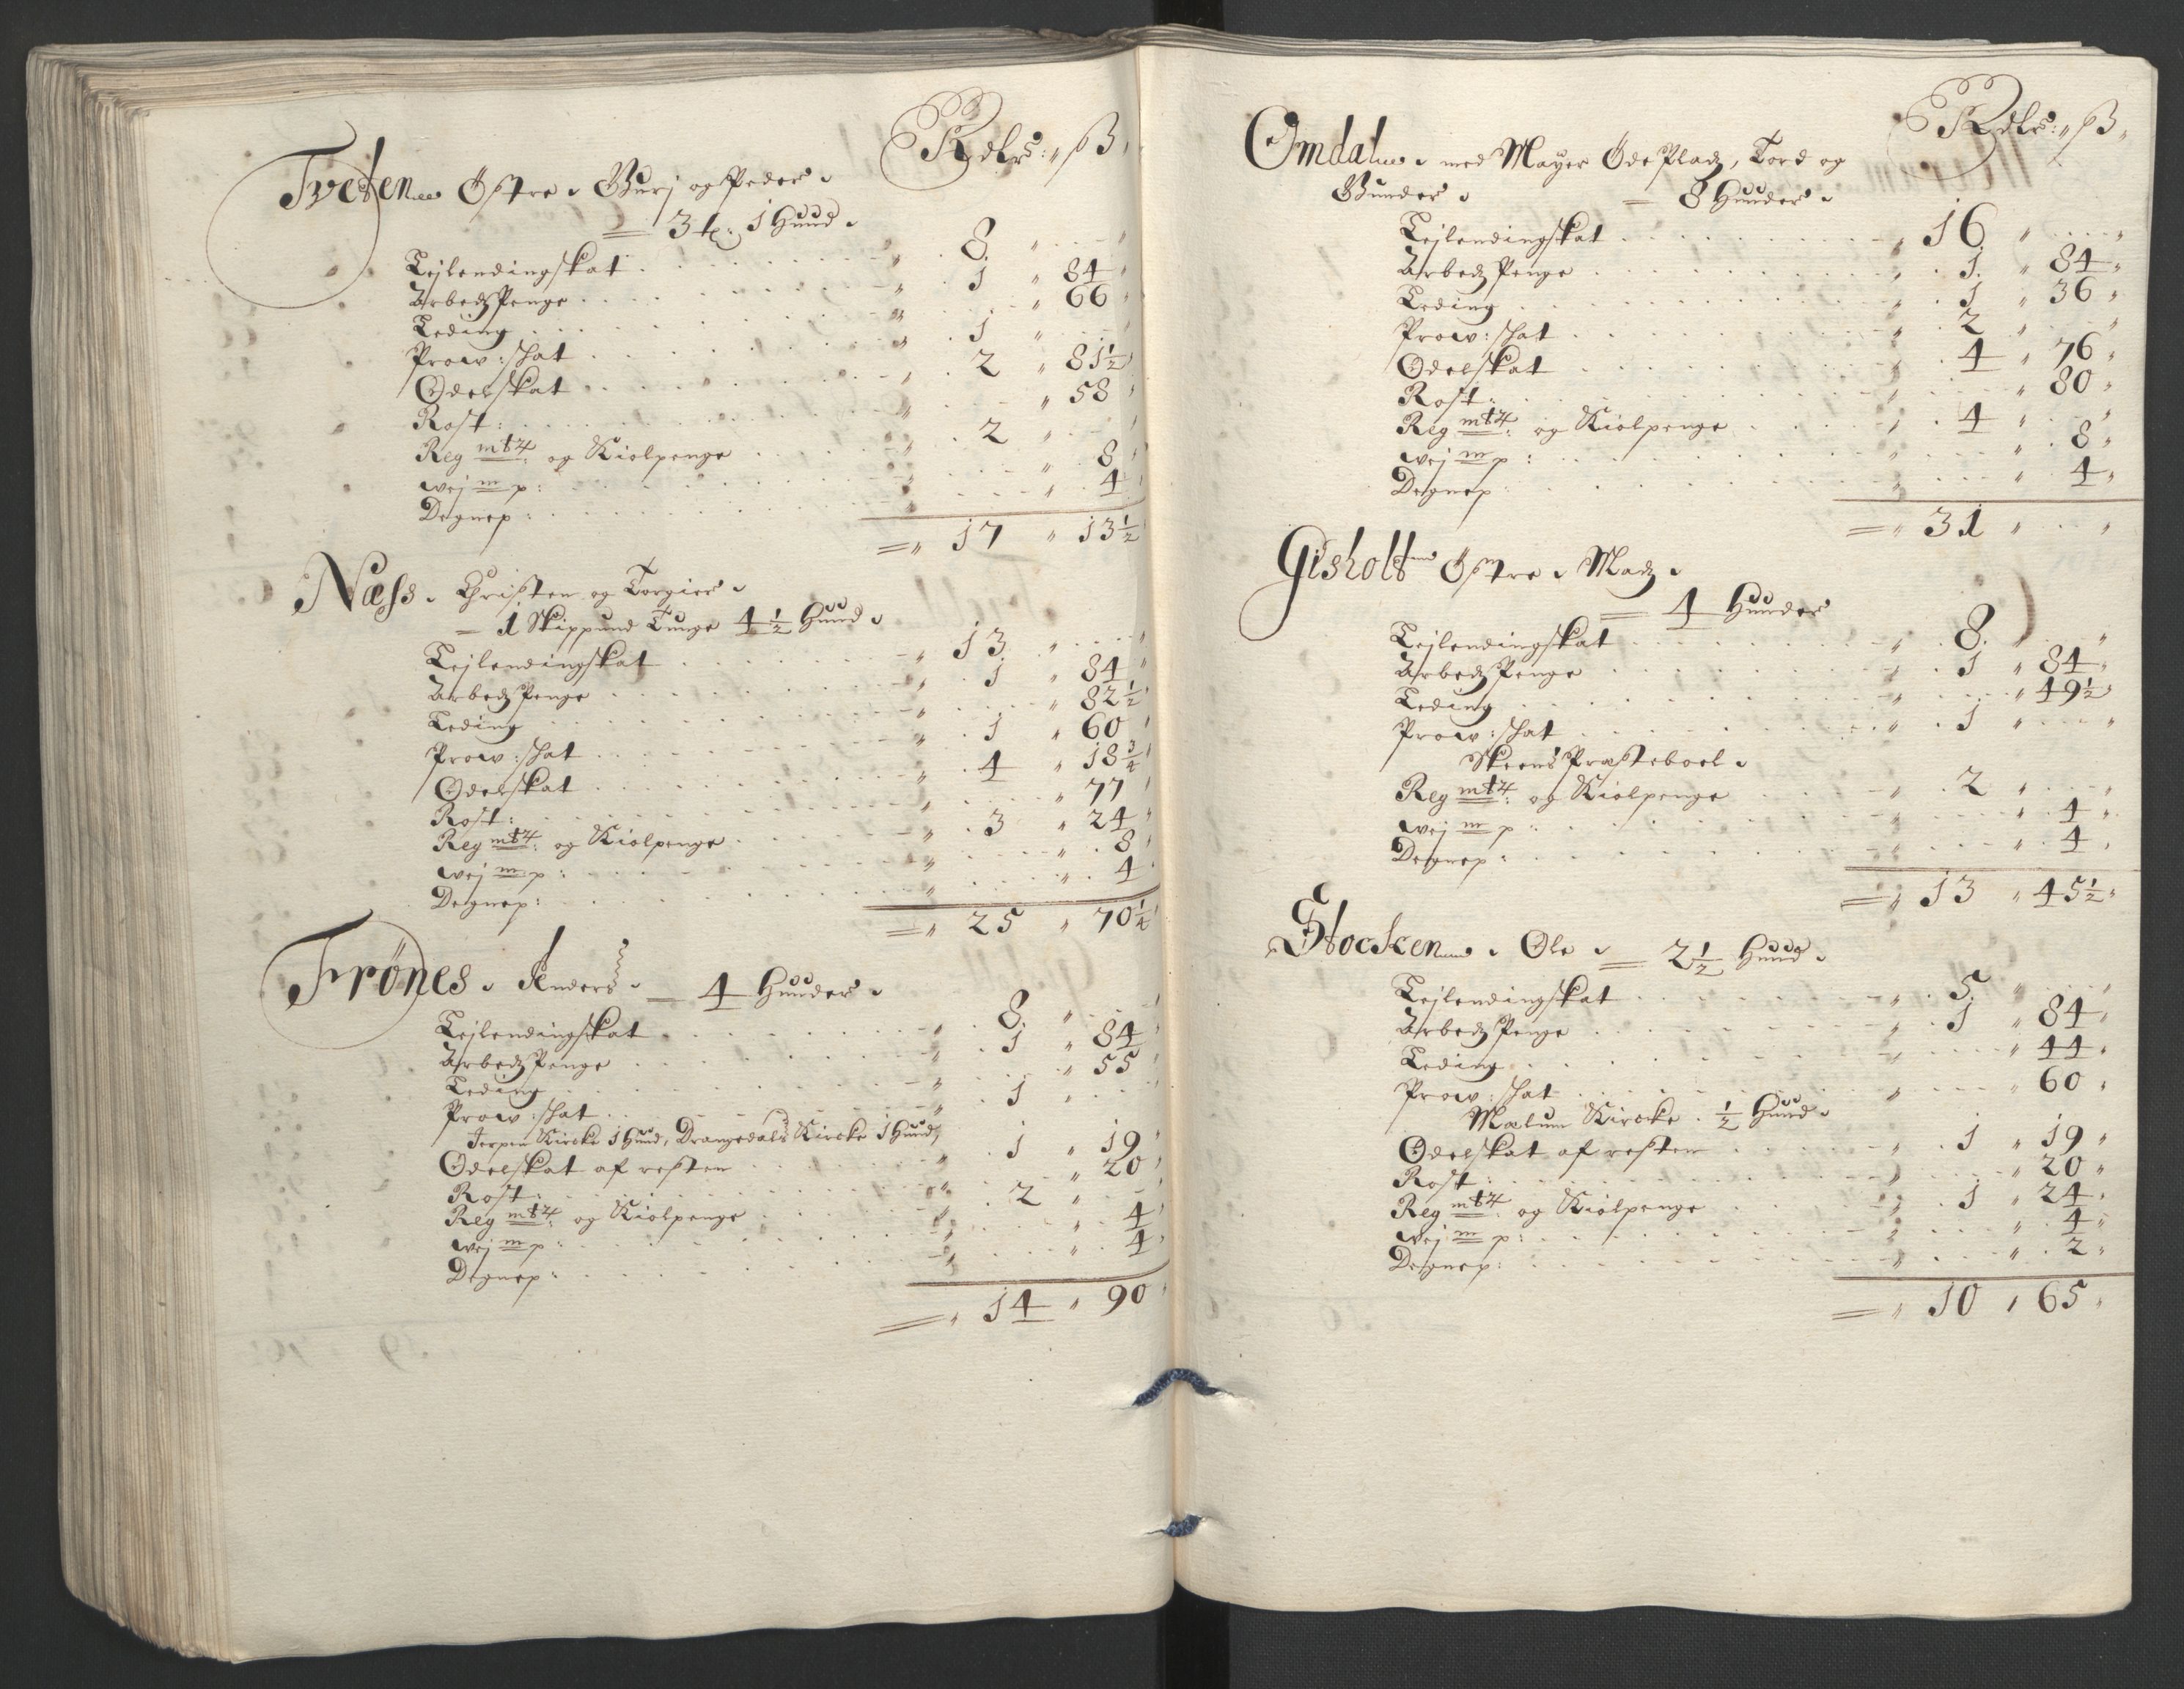 Rdlr: ß
Tveten Østre. Gurj og Peder.
= 3 t: 1 Huud.
Lejlendingskat 8
Arbedz Penge 1 84
Leding 66
Prow: skat 1
Odelskat 2 81½
Rost: 58
Reg mt4: og Kiolpenge 2
wej m p: 8
Degnep: 4
= 17 13½
Næss. Christen og Torgier.
= 1 Skippund Tunge 4½ Huud.
Lejlendingskat 13
Arbedz Penge 1 84
Leding 82½
Prow: skat 1 60
Odelskat 4 18¾
Rost: 77
Reg mt4: og Kiolpenge 3 24
wej m p: 8
Degnep: 4
= 25 70¼
Frönes. Anders. = 4 Huuder.
Lejlendingskat 8
Arbedz Penge 1 84
Leding 55
Prow: skat 1
Jerpen Kircke 1 Huud, Drangedals Kircke 1 Huud,
Odelskat af resten 1 19
Rost: 20
Reg mt4: og Kiolpenge 2
wej m p: 4
Degnep: 4
= 14 90
Rdlr: ß
Omdal. med Mayer Öde Pladz, Tord og
Gunder. = 8 Huuder.
Lejlendingskat 16
Arbedz Penge 1 84
Leding 1 36
Prow: skat 2
Odelskat 4 76
Rost: 80
Reg mt4: og Kiolpenge 4
wej m p: 8
Degnep: 4
= 31
Gisholt Østre. Madz.
= 4 Huuder
Lejlendingskat 8
Arbedz Penge 1 84
Leding 49½
Prow: skat 1
Skeens Præsteboel.
Reg mt4: og Kiolpenge 2
wej m p: 4
Degnep: 4
= 13 45½
Stocken. Ole. = 2½ Huud.
Lejlendingskat 5
Arbedz Penge 1 84
Leding 44
Prow: skat 60
Mælum Kircke. ½ Huud.
Odelskat af resten 1 19
Rost: 20
Reg mt4: og Kiolpenge 1 24
wej m p: 4
Degnep: 2
= 10 65